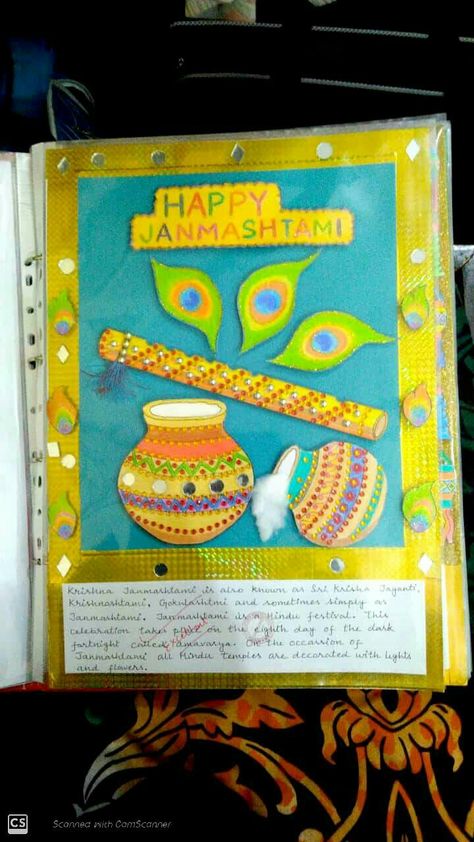 HAPPY
JANMASHTAMI
Krishna Janmashtami is also known as Sri Krisha Jayanti,
Krishnashtami, Gokulashtmi and sometimes simply as
Janmashtami. Janmashtami is a Hindu festival. This
celebration takes place on the eighth day of the dark
fortnight called amavasya. On the occassion of
Janmashtami all Hindu temples are decorated with lights
and flowers.
CS
Scanned with CamScanner